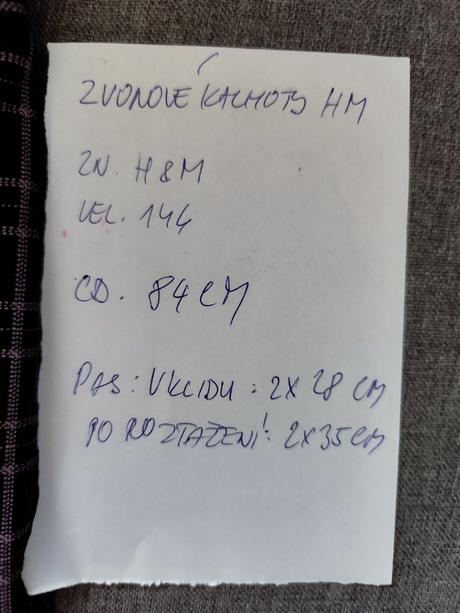 ZVONOVÉ KALHOTY HM
ZN. H&M
VEL. 146
CD. 84 CM
PAS: V KLIDU: 2X 28 CM
PO ROZTAŽENÍ: 2X35CM